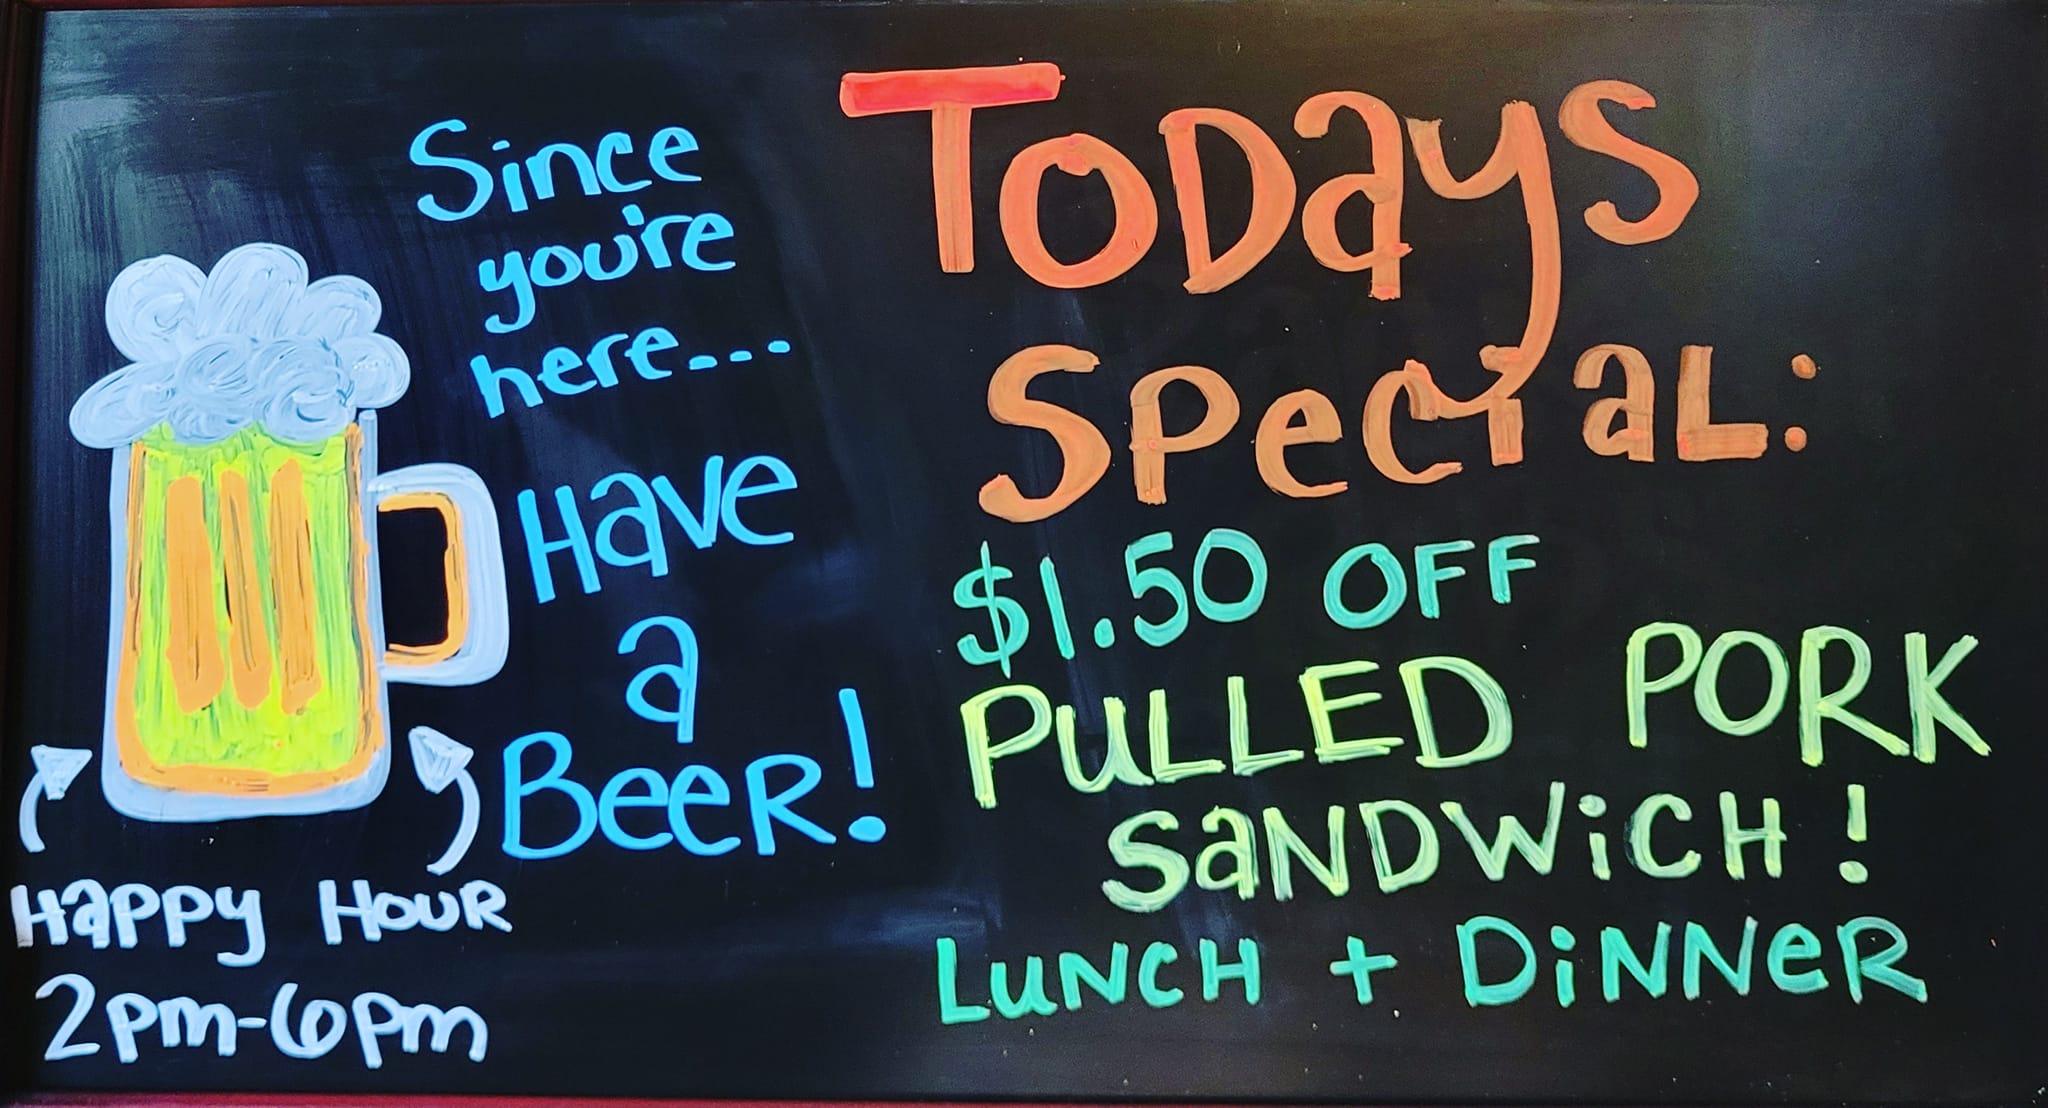 Since
you're
here...
Have
a
Beer!
Happy Hour
2pm-6pm
Todays
Special:
$1.50 OFF
PULLED PORK
SANDWiCH!
LUNCH + DiNNeR